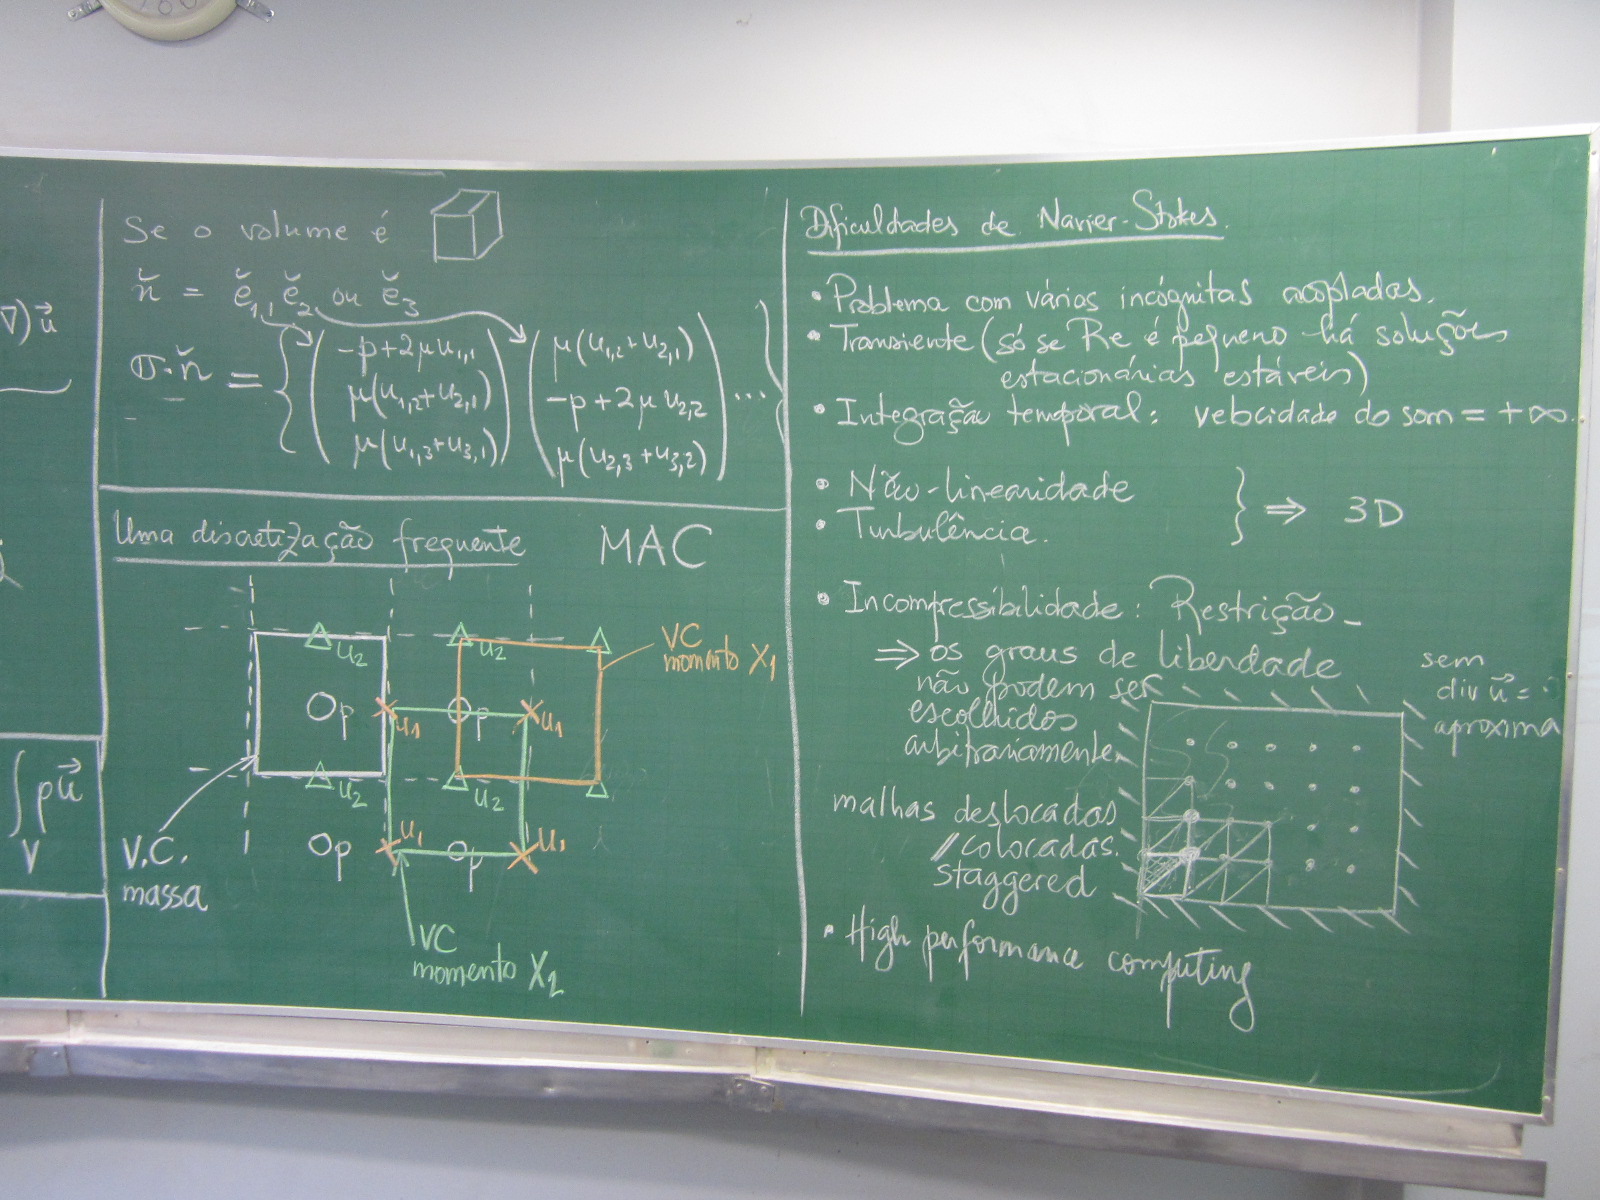 ∇)u⃗
∫ρu⃗
V
Se o volume é
ň = ě₁, ě₂ ou ě₃
σ·ň = { ( -p+2μu₁,₁ ) ( μ(u₁,₂+u₂,₁) )
μ(u₁,₂+u₂,₁) -p+2μu₂,₂ ... }
μ(u₁,₃+u₃,₁) μ(u₂,₃+u₃,₂)
Uma discretização frequente MAC
u₂ u₂
VC
momento X₁
p u₁ p u₁
u₂ u₂
p u₁ p u₁
V.C.
massa
VC
momento X₂
Dificuldades de Navier-Stokes.
• Problema com vários incógnitas acopladas.
• Transiente (só se Re é pequeno há soluções
estacionárias estáveis)
• Integração temporal: velocidade do som = +∞.
• Não-linearidade
• Turbulência. } ⇒ 3D
• Incompressibilidade: Restrição
⇒ os graus de liberdade
não podem ser
escolhidos
arbitrariamente.
sem
div u⃗ =
aproxima
malhas deslocadas
/colocadas.
staggered
• High performance computing